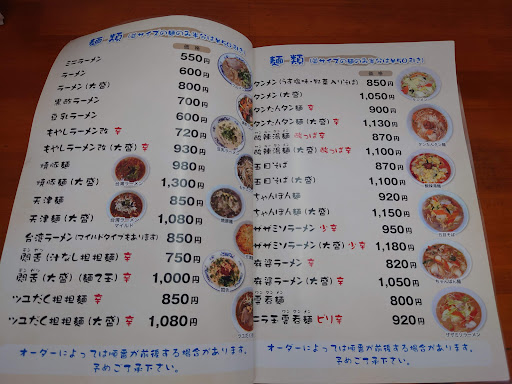 麺類 (全サイズの麺のみ半分は¥50引き)
価格
ミニラーメン 550円
ラーメン 600円
ラーメン(大盛) 800円
黒豚ラーメン 700円
豆乳ラーメン 600円
もやしラーメン改 辛 720円
もやしラーメン改(大盛) 辛 930円
焼豚麺 980円
焼豚麺(大盛) 1,300円
天津麺 850円
天津麺(大盛) 1,080円
台湾ラーメン(マイルドタイプもあります) 850円
悶舌(汁なし担担麺) 辛 750円
悶舌(大盛)(麺2玉) 辛 1,000円
ツユだく担担麺 辛 850円
ツユだく担担麺(大盛) 辛 1,080円
オーダーによっては順番が前後する場合があります。
予めご了承下さい。
台湾ラーメン
台湾ラーメン
マイルド
麺類 (全サイズの麺のみ半分は¥50引き)
価格
タンメン(うす塩味・野菜入りそば) 850円
タンメン(大盛) 1,050円
タンたんタン麺 辛 900円
タンたんタン麺(大盛) 辛 1,130円
酸辣湯麺 酸っぱ辛 870円
酸辣湯麺(大盛) 酸っぱ辛 1,100円
五目そば 870円
五目そば(大盛) 1,100円
ちゃんぽん麺 920円
ちゃんぽん麺(大盛) 1,150円
サザミソラーメン 少辛 950円
サザミソラーメン(大盛) 少辛 1,180円
麻婆ラーメン 辛 820円
麻婆ラーメン(大盛) 辛 1,050円
雲呑麺 800円
ニラ玉雲呑麺 ピリ辛 920円
タンたんタン麺
酸辣湯麺
五目そば
ちゃんぽん麺
サザミソラーメン
オーダーによっては順番が前後する場合があります。
予めご了承下さい。